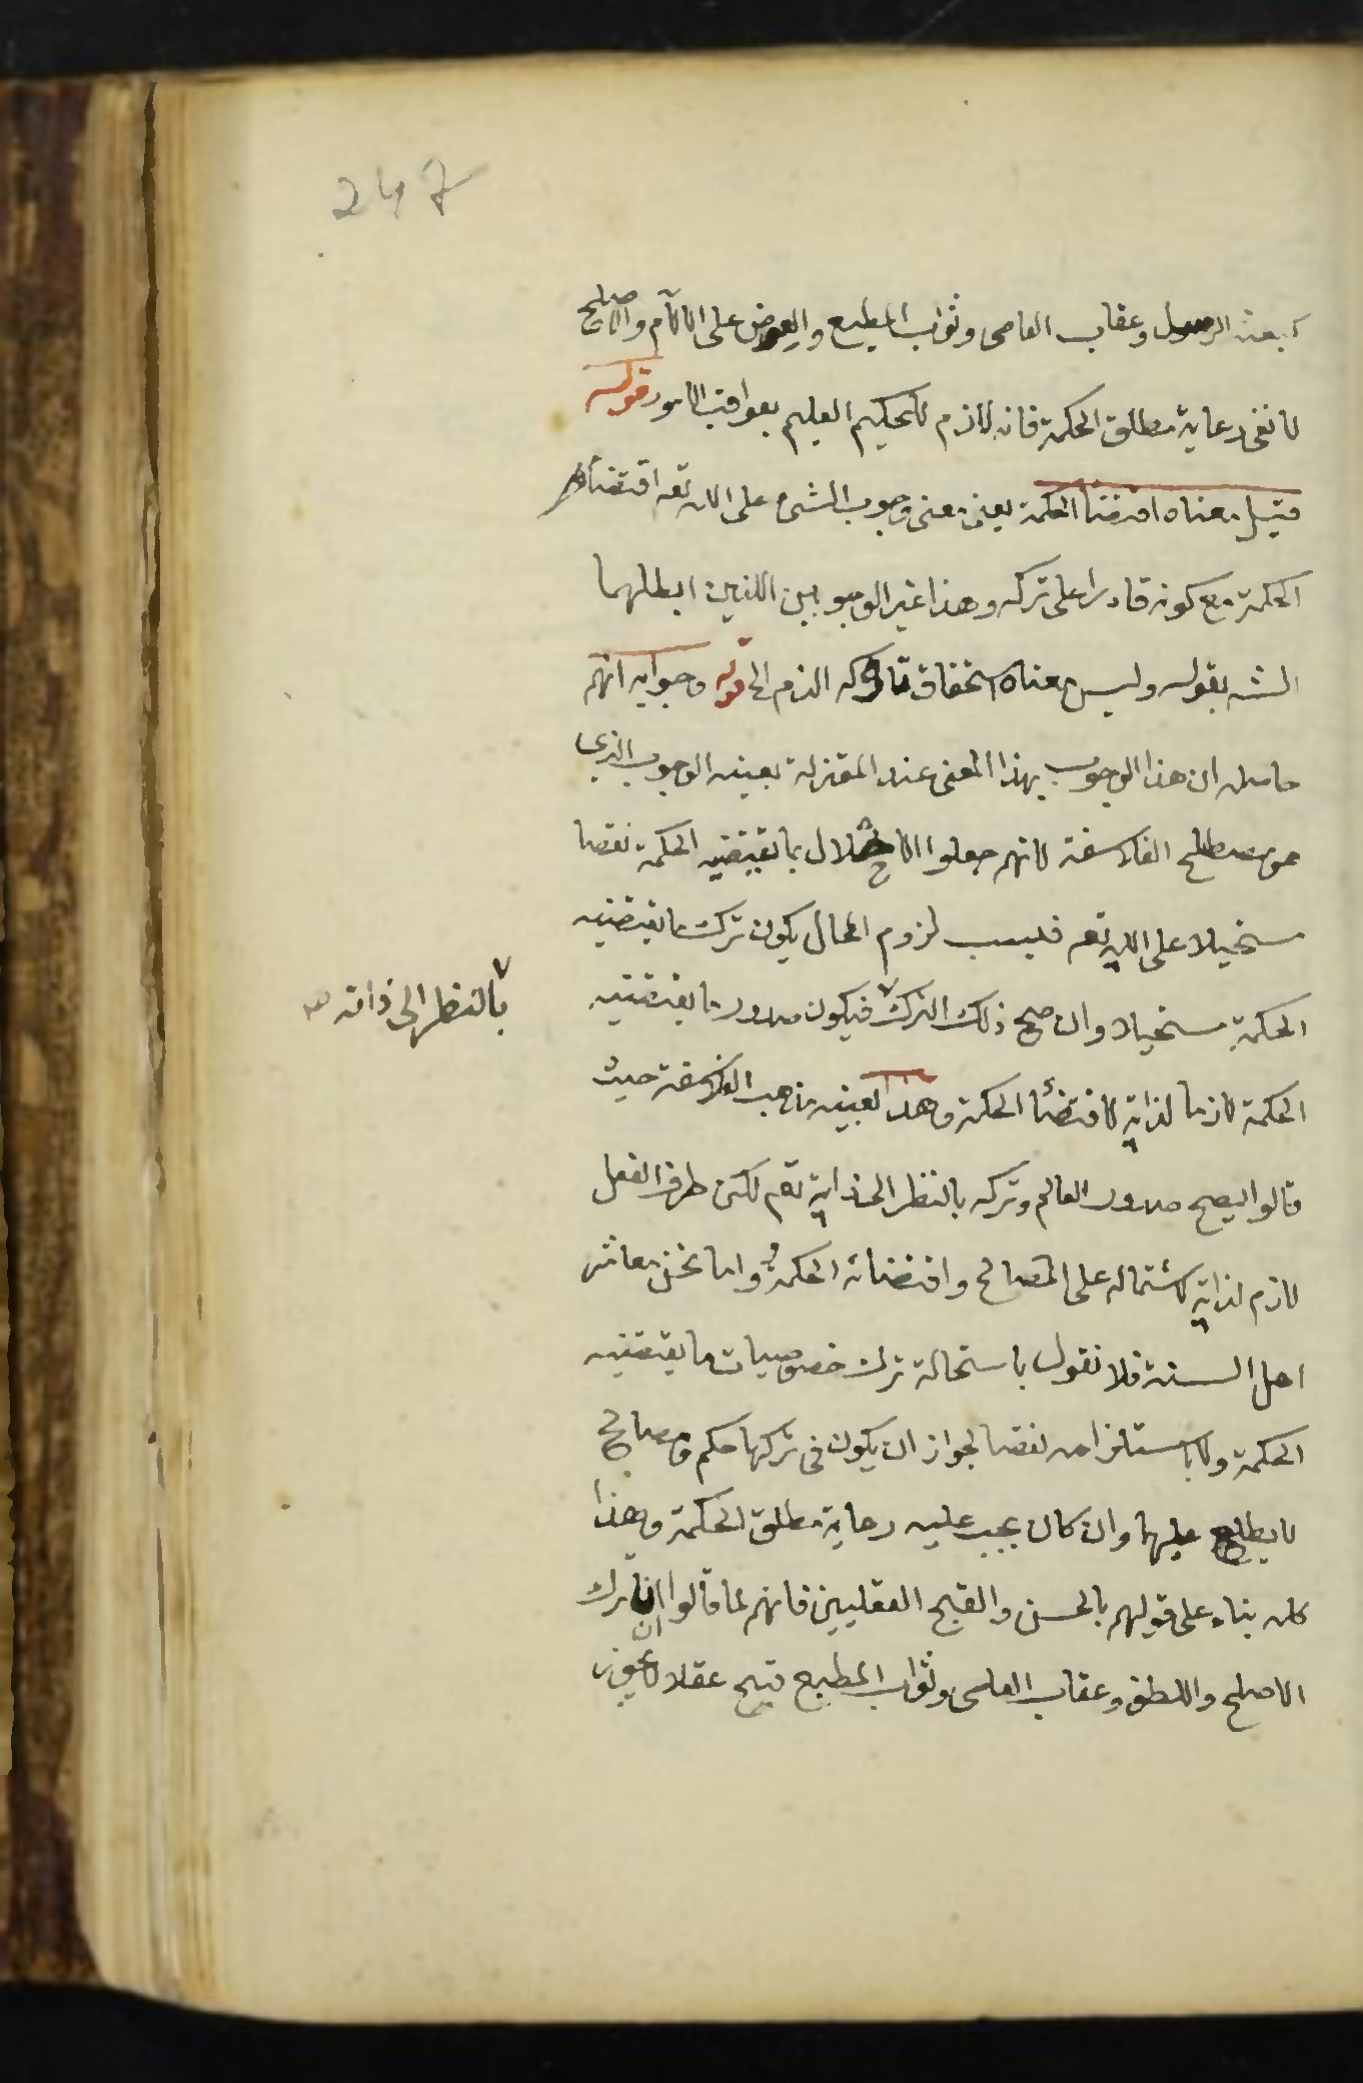 247
كبعثة الرسول وعقاب العاصى وثواب المطيع والعوض على الالآم والاصلح
لا نفى رعاية مطلق الحكمة فانه لازم للحكيم العليم بعواقب الامور قوله
قيل معناه اقتضاء الحكمة يعنى معنى وجوب الشئ على الله تعه اقتضاء
الحكمة مع كونه قادرا على تركه وهذا غير الوجوبين اللذين ابطلهما
الشه بقوله وليس معناه استحقاق تاركه الذم الى قوله وجوابه انهم
حاصله ان هذا الوجوب بهذا المعنى عند المعتزلة بعينه الوجوب الذى
هو مصطلح الفلاسفة لانهم جعلوا الاخلال بما تقتضيه الحكمة نقصا
مستحيلا على الله تعه فلسبب لزوم المحال يكون ترك ما يقتضيه
الحكمة مستحيلا وان صح ذلك الترك فيكون صدور ما يقتضيه
بالنظر الى ذاته
الحكمة لازما لذاته لاقتضاء الحكمة وهذا بعينه مذهب الفلاسفة حيث
قالوا يصح صدور العالم وتركه بالنظر الى ذاته تعه لكن طرف الفعل
لازم لذاته لاشتماله على المصالح واقتضائه الحكمة واما نحن معاشر
اهل السنة فلا نقول باستحالة ترك خصوصيات ما يقتضيه
الحكمة ولا باستلزامه نقصا لجواز ان يكون فى تركها حكم ومصالح
لا يطلع عليها وان كان يجب عليه رعاية مطلق الحكمة وهذا
كله بناء على قولهم بالحسن والقبح العقليين فانهم لما قالوا ان ترك
الاصلح واللطف وعقاب العاصى وثواب المطيع قبيح عقلا لا يجوز